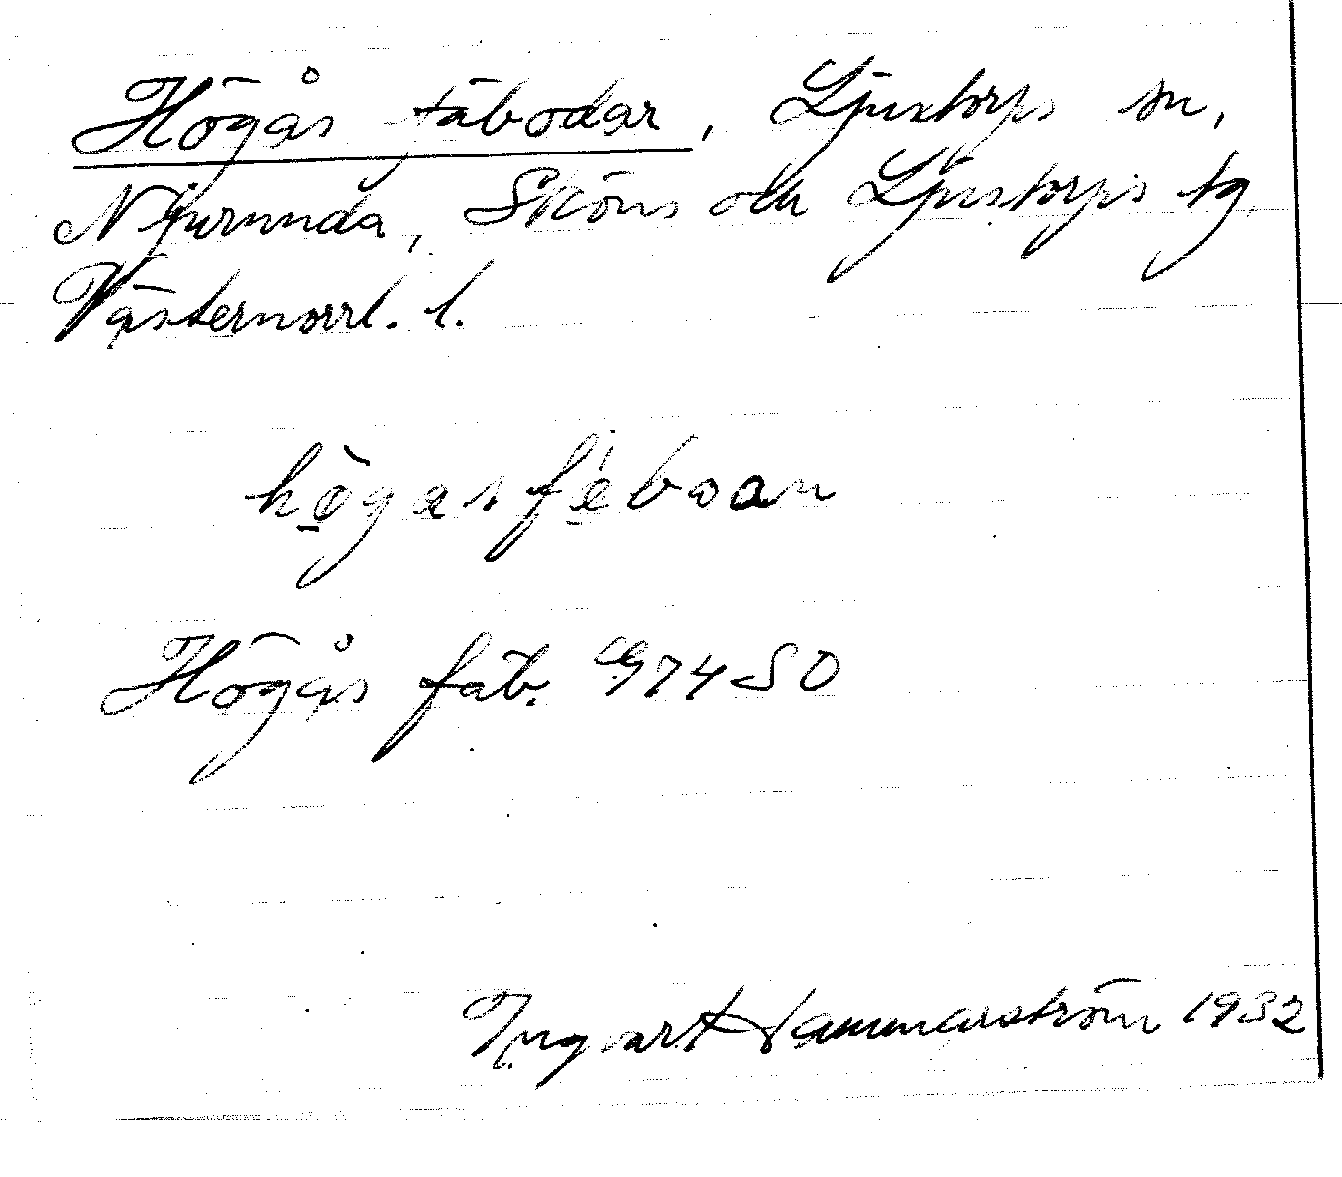 Högås fäbodar, Ljustorps sn,
Njurunda, Sköns och Ljustorps tg
Västernorrl. l.
högasféboan
Högås fäb. G74SO
Ingvart Hammarström 1932